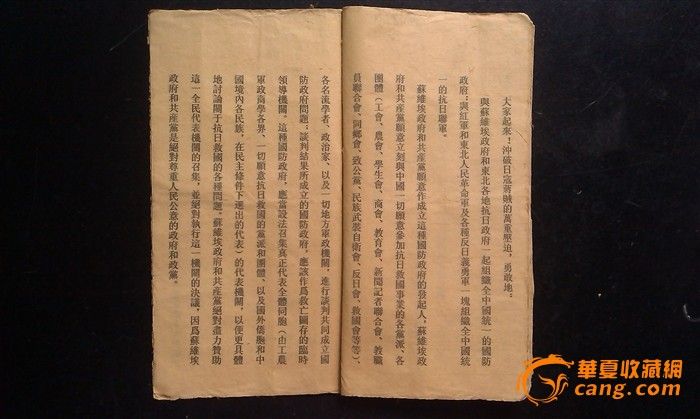 大家起來！沖破日寇蔣賊的萬重壓迫，勇敢地：
與蘇維埃政府和東北各地抗日政府一起組織全中國統一的國防
政府；與紅軍和東北人民革命軍及各種反日義勇軍一塊組織全中國統
一的抗日聯軍。
蘇維埃政府和共產黨願意作成立這種國防政府的發起人，蘇維埃政
府和共產黨願意立刻與中國一切願意參加抗日救國事業的各黨派、各
團體（工會、農會、學生會、商會、教育會、新聞記者聯合會、教職
員聯合會、同鄉會、致公黨、民族武裝自衞會、反日會、救國會等等）、
各名流學者、政治家、以及一切地方軍政機關，進行談判共同成立國
防政府問題；談判結果所成立的國防政府，應該作爲救亡圖存的臨時
領導機關。這種國防政府，應當設法召集真正代表全體同胞（由工農
軍政商學各界、一切願意抗日救國的黨派和團體，以及國外僑胞和中
國境內各民族，在民主條件下選出的代表）的代表機關，以便更具體
地討論關于抗日救國的各種問題。蘇維埃政府和共產黨絕對盡力贊助
這一全民代表機關的召集，並絕對執行這一機關的決議，因爲蘇維埃
政府和共產黨是絕對尊重人民公意的政府和政黨。
華夏收藏網
cang.com